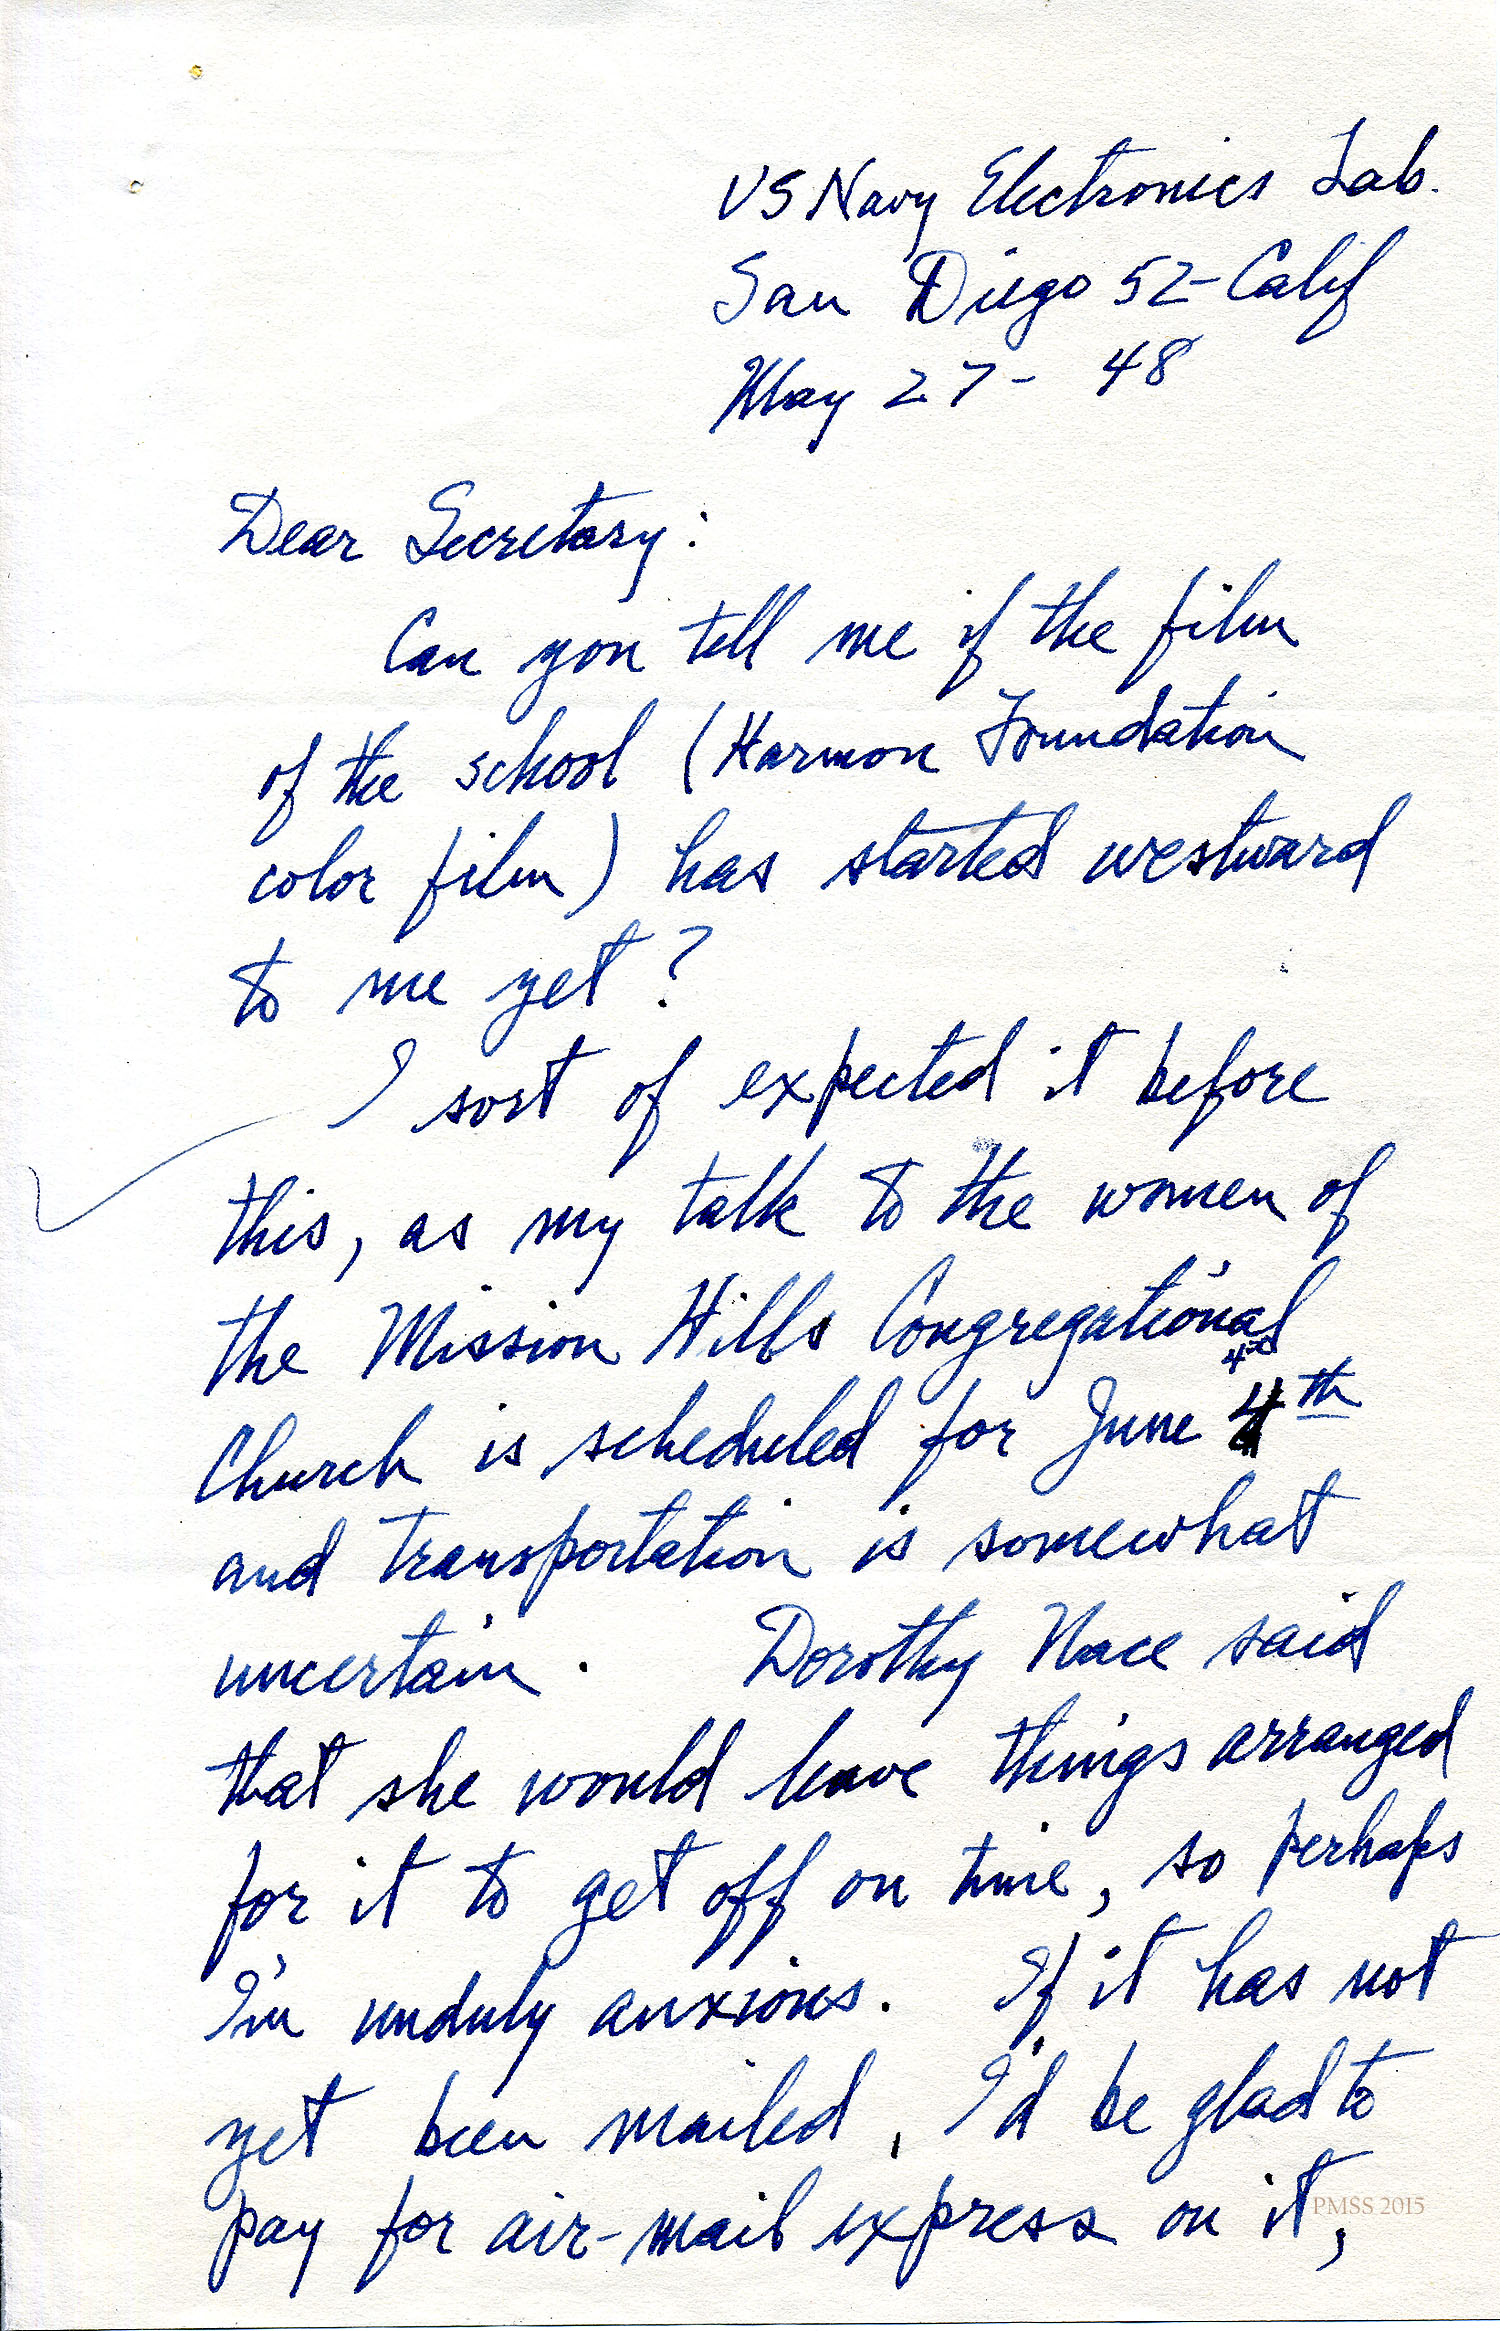 US Navy Electronics Lab.
San Diego 52-Calif
May 27- 48
Dear Secretary:
Can you tell me if the film
of the school (Harmon Foundation
color film) has started westward
to me yet?
I sort of expected it before
this, as my talk to the women of
the Mission Hills Congregational
Church is scheduled for June 4th
and transportation is somewhat
uncertain. Dorothy Nace said
that she would leave things arranged
for it to get off on time, so perhaps
I'm unduly anxious. If it has not
yet been mailed, I'd be glad to
pay for air-mail express on it,
PMSS 2015